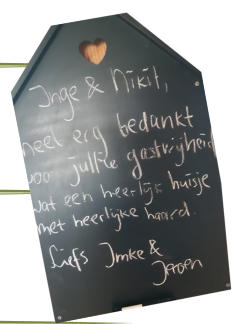 Inge & Nikit,
heel erg bedankt
voor jullie gastvrijheid
wat een heerlijk huisje
met heerlijke haard.
Liefs Imke &
Jeroen